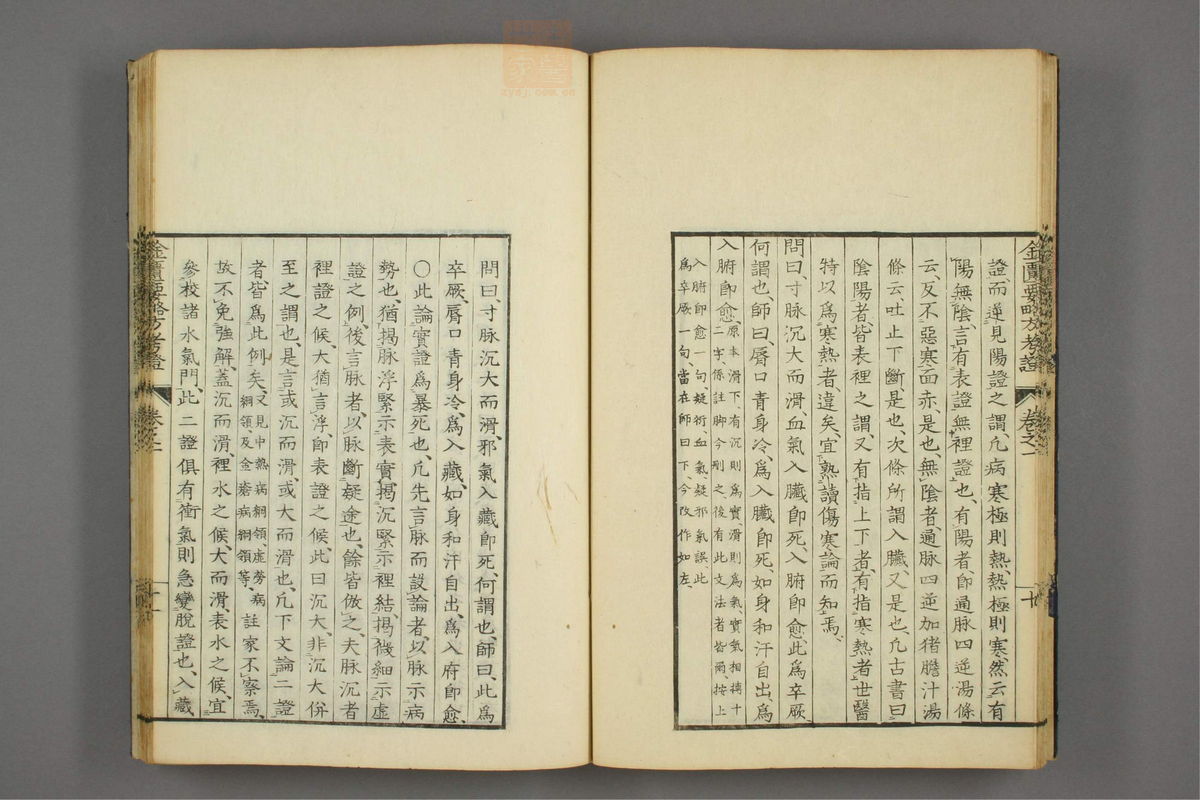 證、而逆見陽證之謂、凡病寒極則熱、熱極則寒、然云有
陽無陰、言有表證無裡證也、有陽者、卽通脉四逆湯條
云、反不惡寒、面赤、是也、無陰者、通脉四逆加猪膽汁湯
條云吐止下斷、是也、次條所謂入臟、又是也、凡古書曰
陰陽者、皆表裡之謂、又有指上下者、有指寒熱者、世醫
特以爲寒熱者違矣、宜熟讀傷寒論而知焉、
問曰、寸脉沉大而滑、血氣入臟卽死、入腑卽愈、此爲卒厥
何謂也、師曰、唇口青身冷、爲入臟卽死、如身和汗自出、爲
入腑卽愈、
原本滑下、有沉則爲實、滑則爲氣、實氣相摶十
二字、係註脚今刪之、後有此文法者皆爾、按上
入腑卽愈一句、疑衍、血氣、疑邪氣誤、此
爲卒厥一句、當在師曰下、今改作如左、
金匱要略方考證
卷之一
十
問曰、寸脉沉大而滑、邪氣入藏卽死、何謂也、師曰、此爲
卒厥、唇口青身冷、爲入藏、如身和汗自出、爲入府卽愈、
〇此論實證爲暴死也、凡先言脉而設論者、以脉示病
勢也、猶揭脉浮緊示表實、揭沉緊示裡結、揭微細示虛
證之例、後言脉者、以脉斷疑途也、餘皆倣之、夫脉沉者
裡證之候、大猶言浮、卽表證之候、此曰沉大、非沉大併
至之謂也、是言或沉而滑、或大而滑也、凡下文論二證
者、皆爲此例矣、
又見中熱病綱領、虛勞病
綱領及金瘡病綱領等、
註家不察焉、
故不免強解、蓋沉而滑、裡水之候、大而滑、表水之候、宜
參校諸水氣門、此二證俱有衝氣、則急變脫證也、入藏
金匱要略方考證
卷之一
十一
zysj.com.cn